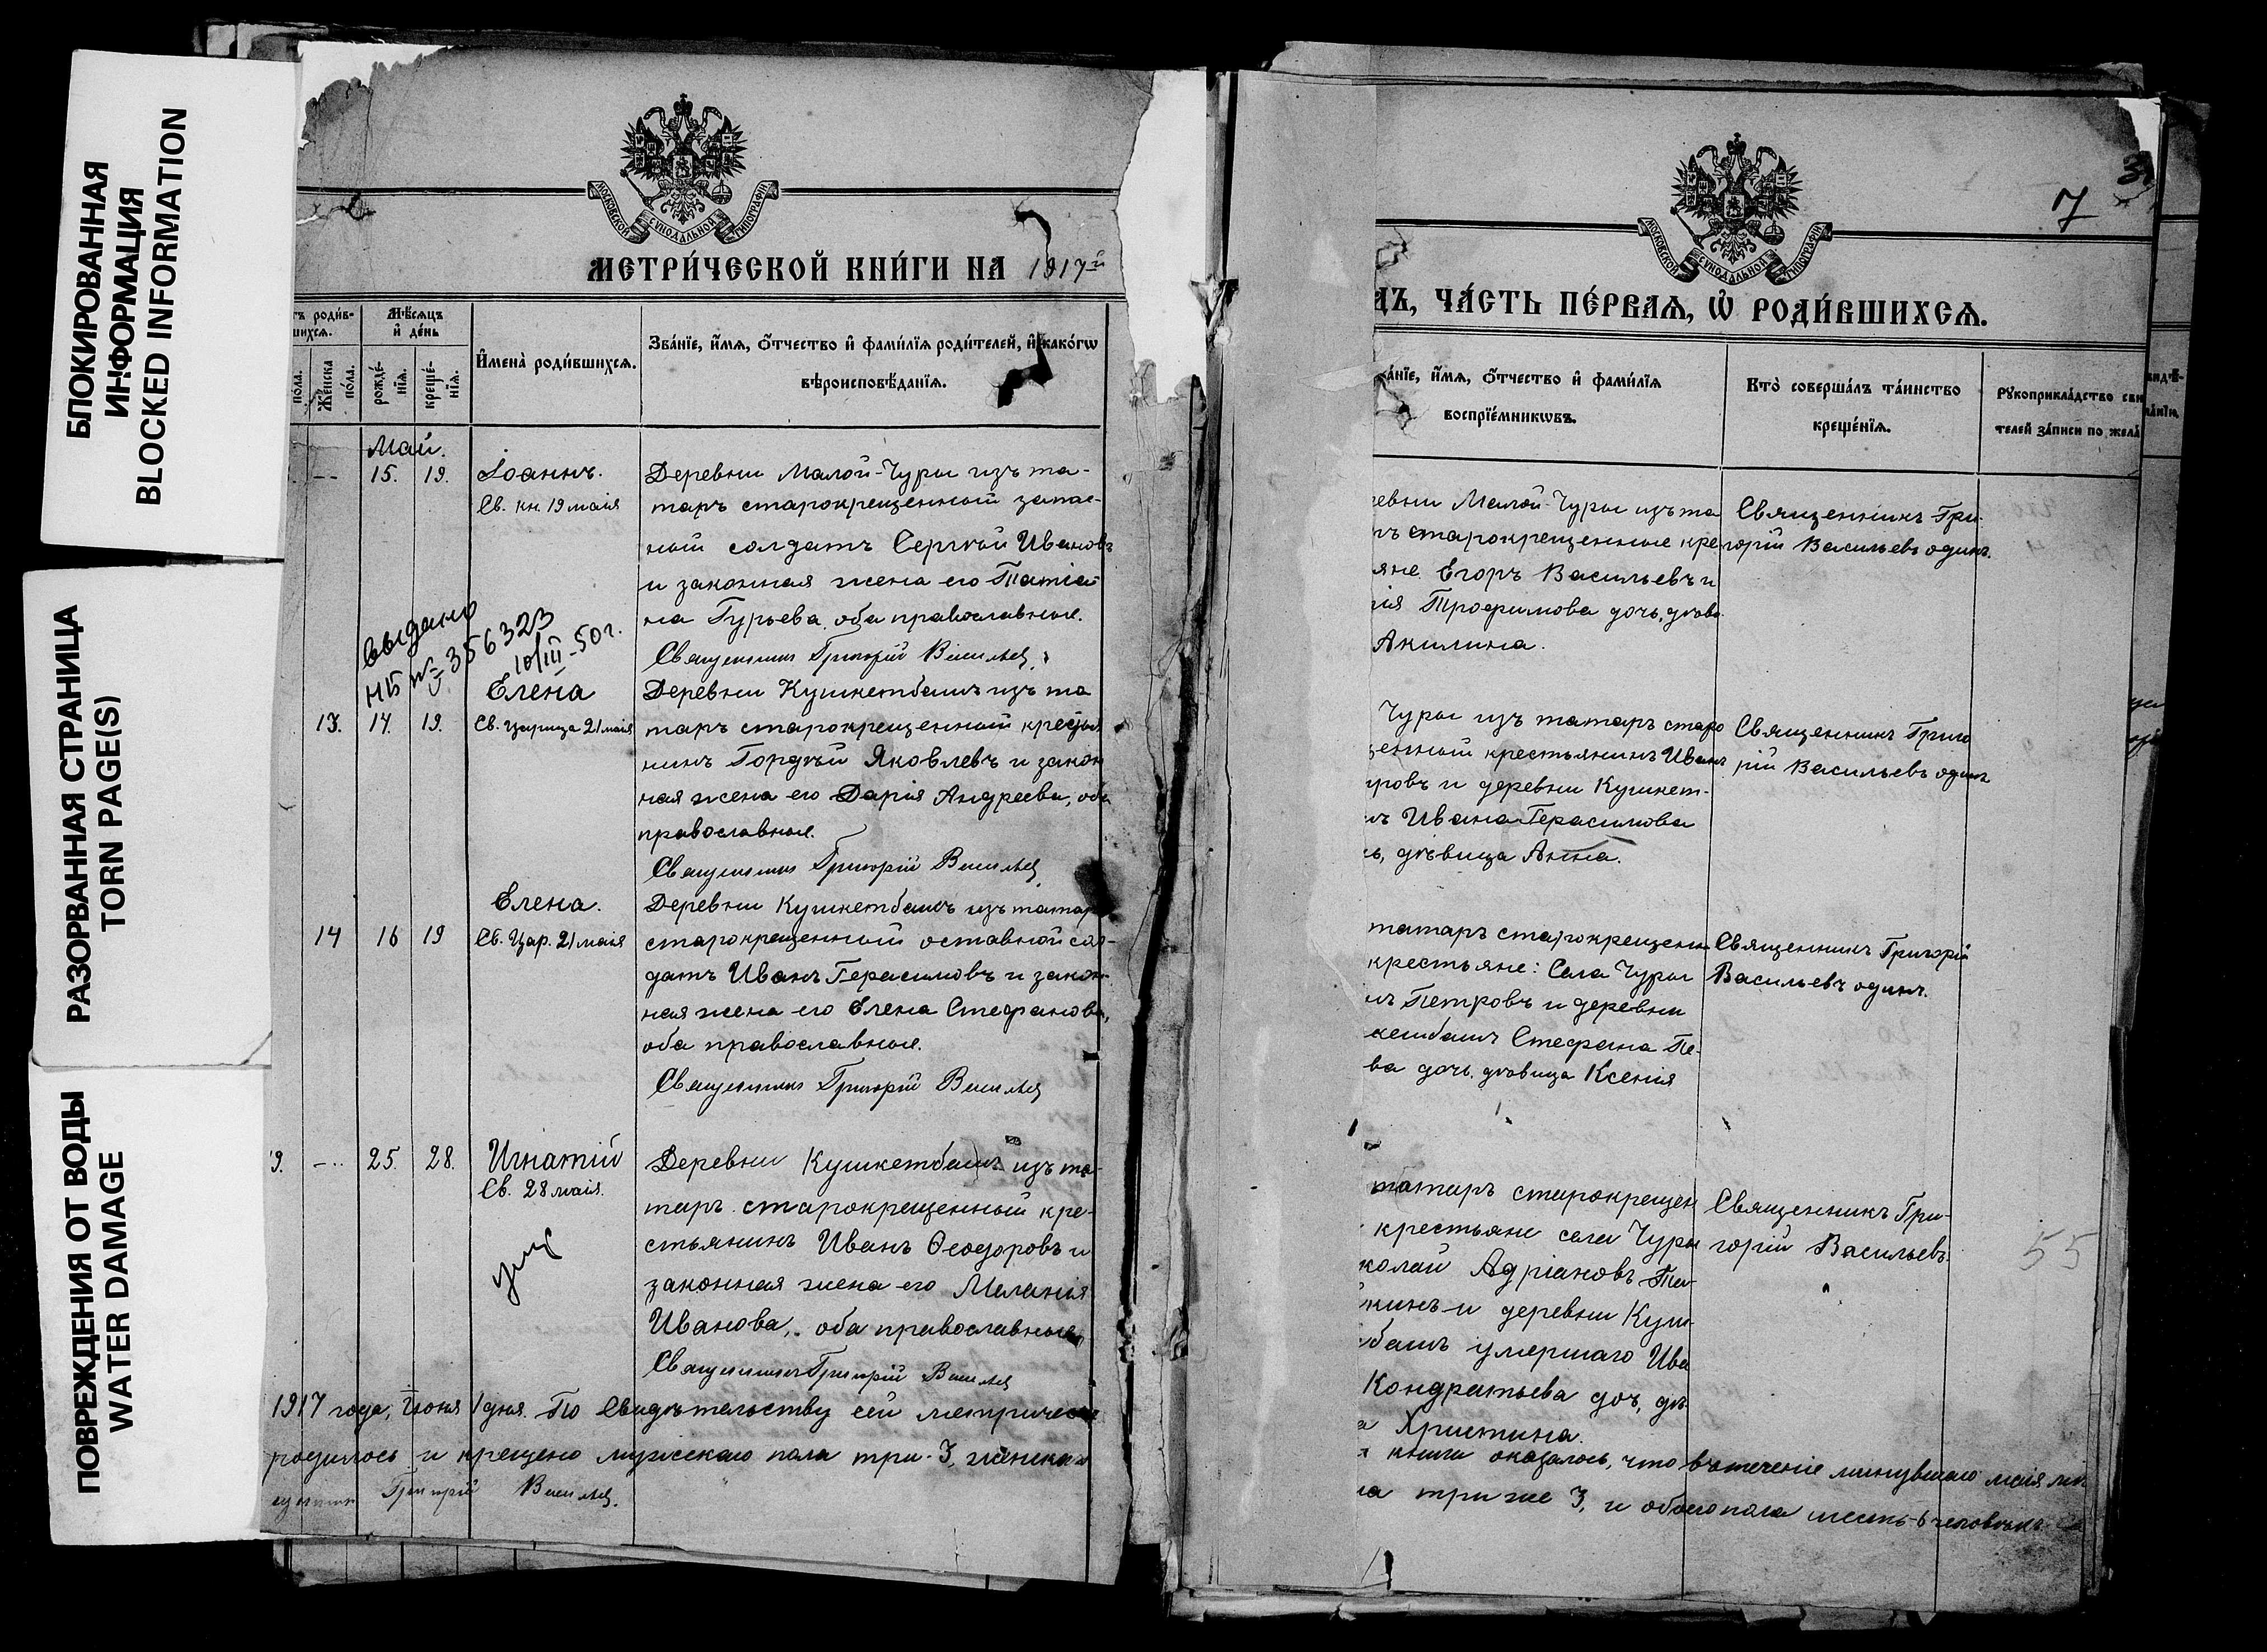 БЛОКИРОВАННАЯ
ИНФОРМАЦИЯ
BLOCKED INFORMATION
РАЗОРВАННАЯ СТРАНИЦА
TORN PAGE(S)
ПОВРЕЖДЕНИЯ ОТ ВОДЫ
WATER DAMAGE
МОСКОВСКОЙ СѴНОДАЛЬНОЙ ТИПОГРАФІИ
МЕТРИ́ЧЕСКОЙ КНИ́ГИ НА 1917й
тъ роди́в-
шихсѧ.
по́ла.
Же́нска
по́ла.
Мѣ́сѧцъ
и҆ де́нь
рожде́-
нїѧ.
креще́-
нїѧ.
И҆мена̀ роди́вшихсѧ.
Зва́нїе, и҆́мѧ, ѻ҆́тчество и҆ фами́лїѧ роди́телей, и҆ како́гѡ
вѣроисповѣ́данїѧ.
Май.
-- 15. 19. Іоаннъ.
Св. кн. 19 маія
Деревни Малой-Чуры изъ та-
таръ старокрещенный запас-
ный солдатъ Сергѣй Ивановъ
и законная жена его Татіа-
на Гурьева, оба православные.
Священникъ Григорій Васильевъ
выдано
НБ № 356323
10/III-50 г.
13. 14. 19. Елена
Св. Царица 21 маія
Деревни Кушкетбашъ изъ та
таръ старокрещенный крестья
нинъ Гордѣй Яковлевъ и закон
ная жена его Дарія Андреева, оба
православные.
Священникъ Григорій Васильевъ
14 16 19 Елена.
Св. Цар. 21 маія
Деревни Кушкетбашъ изъ татаръ
старокрещенный оставной сол-
датъ Иванъ Герасимовъ и закон-
ная жена его Елена Стефанова,
оба православные.
Священникъ Григорій Васильевъ
9. -- 25. 28. Игнатій
Св. 28 маія.
ум
Деревни Кушкетбашъ изъ та-
таръ старокрещенный кре-
стьянинъ Иванъ Ѳеодоровъ и
законная жена его Меланія
Иванова, оба православные
Священникъ Григорій Васильевъ
1917 года, Іюня 1 дня. По свидѣтельству сей метричес
родилось и крещено мужскаго пола три-3, женска
Григорій Васильевъ.
7
3
МОСКОВСКОЙ СѴНОДАЛЬНОЙ ТИПОГРАФІИ
ДЪ, ЧА́СТЬ ПЕ́РВАѦ, Ѡ҆ РОДИ́ВШИХСѦ.
а́нїе, и҆́мѧ, ѻ҆́тчество и҆ фами́лїѧ
воспрїе́мникѡвъ.
Кто̀ соверша́лъ та́инство
креще́нїѧ.
Рꙋкоприкла́дство сви
телей за́писи по жела
евни Малой-Чуры изъ та
ръ старокрещенные кре
яне Егоръ Васильевъ и
рія Трофимова дочь, дѣви
Акилина.
Священникъ Гри-
горій Васильевъ одинъ.
Чуры изъ татаръ старо
щенный крестьянинъ Иванъ
тровъ и деревни Кушкет-
ъ Ивана Герасимова
ь, дѣвица Анна.
Священникъ Григо
рій Васильевъ одинъ
татаръ старокрещены
крестьяне: Села Чуры
ъ Петровъ и деревни
кетбашъ Стефана Пе-
ва дочь, дѣвица Ксенія
Священникъ Григорій
Васильевъ одинъ.
татаръ старокрещен
крестьяне села Чуры
колай Адріановъ
и деревни Куш-
башъ умершаго Ива
Кондратьева доч, дѣ
а Христина.
Священникъ Гри-
горій Васильевъ.
55
книги оказалось, что въ теченіе минувшаго маія мѣ
ла три же 3, и обоего пола шесть-6 человѣкъ.